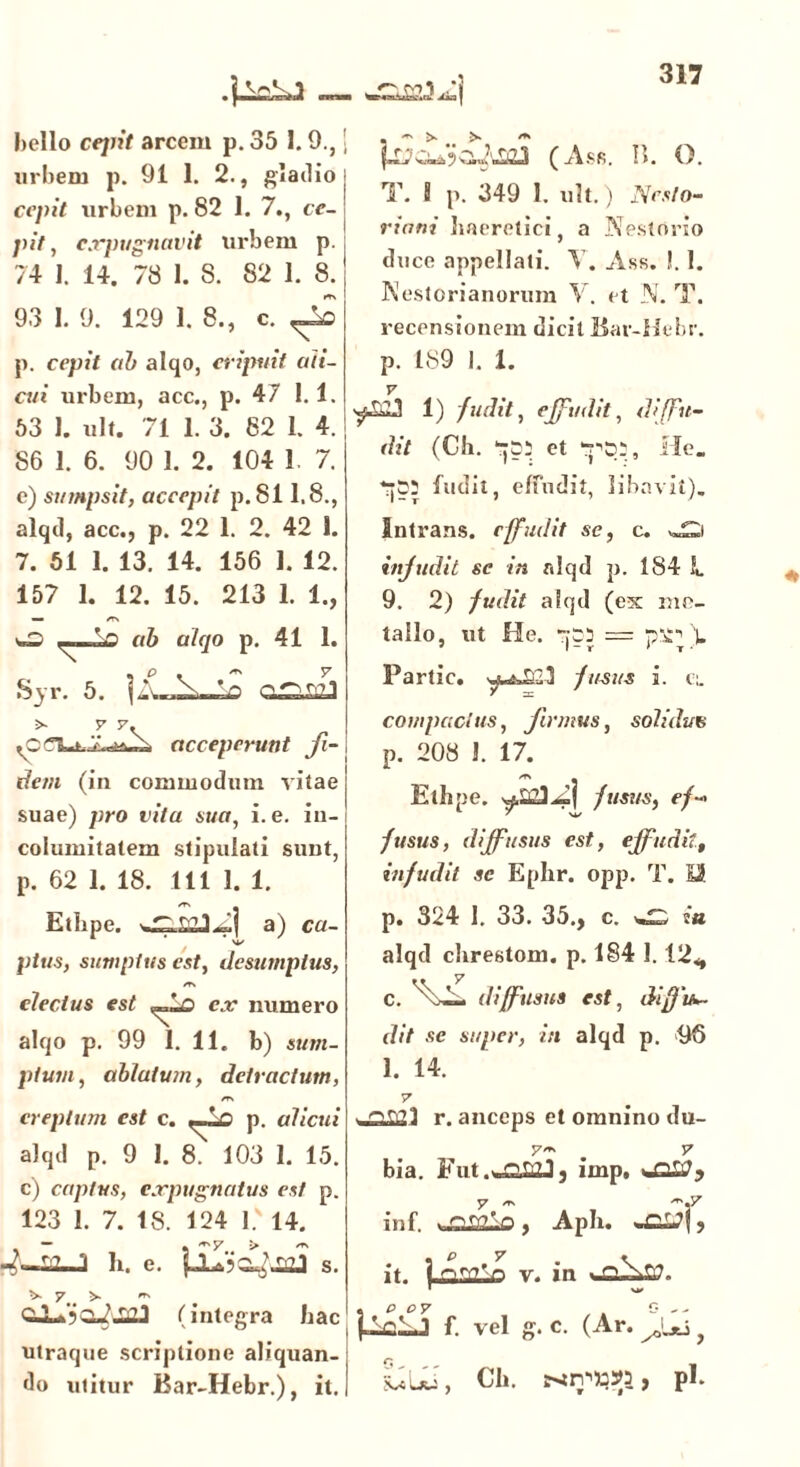 .ܢܥܡܐ — ܐܬܢܣܒ 317
bello cepit arcem p. 35 l. 9.,
urbem p. 91 l. 2., gladio
cepit urbem p. 82 l. 7., ce-
pit, expugnavit urbem p.
74 l. 14. 78 l. 8. 82 l. 8.
93 l. 9. 129 l. 8., c. ܡܢ
p. cepit ab alqo, eripuit ali-
cui urbem, acc., p. 47 l. 1.
53 l. ult. 71 l. 3. 82 l. 4.
86 l. 6. 90 l. 2. 104 l. 7.
c) sumpsit, accepit p. 81 l. 8.,
alqd, acc., p. 22 l. 2. 42 l.
7. 51 l. 13. 14. 156 l. 12.
157 l. 12. 15. 213 l. 1.,
ܡܢ ab alqo p. 41 l.
Syr. 5. ܢܣܒܘ
acceperunt fi-
dem (in commodum vitae
suae) pro vita sua, i. e. in-
columitatem stipulati sunt,
p. 62 l. 18. 111 l. 1.
Ethpe. ܐܬܢܣܒ a) ca-
ptus, sumptus est, desumptus,
electus est ܡܢ ex numero
alqo p. 99 l. 11. b) sum-
ptum, ablatum, detractum,
ereptum est c. ܡܢ p. alicui
alqd p. 9 l. 8. 103 l. 15.
c) captus, expugnatus est p.
123 l. 7. 18. 124 l. 14.
h. e. s.
(integra hac
utraque scriptione aliquan-
do utitur Bar-Hebr.), it.
(Ass. B. O.
T. I p. 349 l. ult.) Nesto-
riani haeretici, a Nestorio
duce appellati. V. Ass. l. l.
Nestorianorum V. et N. T.
recensionem dicit Bar-Hebr.
p. 189 l. 1.
ܢܣܟ 1) fudit, effudit, diffu-
dit (Ch. נסך et נסיך, He.
נסך fudit, effudit, libavit).
Intrans. effudit se, c. ܒ
infudit se in alqd p. 184 l.
9. 2) fudit alqd (ex me-
tallo, ut He. נסך = יצק).
Partic. ܢܣܝܟ fusus i. q.
compactus, firmus, solidus
p. 208 l. 17.
Ethpe. ܐܬܢܣܟ fusus, ef-
fusus, diffusus est, effudit,
infudit se Ephr. opp. T. II
p. 324 l. 33. 35., c. ܒ in
alqd chrestom. p. 184 l. 12.,
c. ܥܠ diffusus est, diffu-
dit se super, in alqd p. 96
l. 14.
ܢܣܩ r. anceps et omnino du-
bia. Fut. ܢܣܩ, imp. ܣܩ,
inf. ܡܣܩ, Aph. ܐܣܩ,
it. ܡܣܩܐ v. in ܣܠܩ.
ܢܥܡܐ f. vel g. c. (Ar. نعام,
نعامة, Ch. נעמיתא, pl.